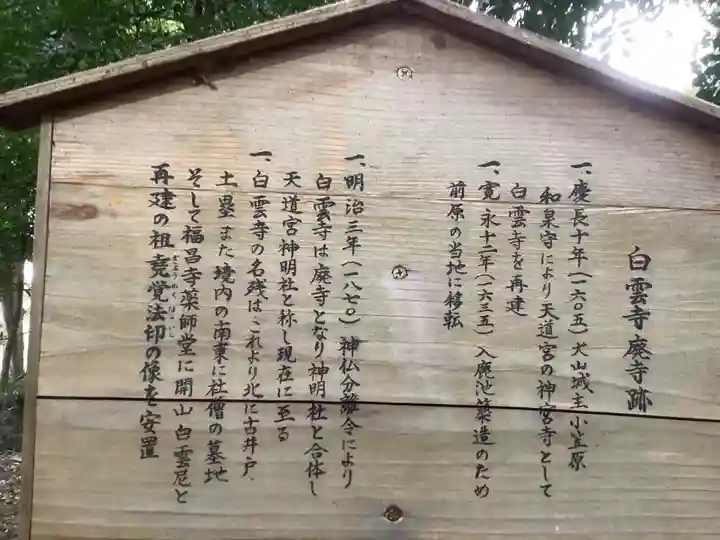 白雲寺廃寺跡
一、慶長十年(一六〇五)犬山城主小笠原
和泉守により天道宮の神宮寺として
白雲寺を再建
一、寛永十二年(一六三五)入鹿池築造のため
前原の当地に移転
一、明治三年(一八七〇)神仏分離令により
白雲寺は廃寺となり神明社と合体し
天道宮神明社と称し現在に至る
一、白雲寺の名残はこれより北に古井戸、
土塁また境内の南東に社僧の墓地
そして福昌寺薬師堂に開山白雲尼と
再建の祖堯覚法印の像を安置